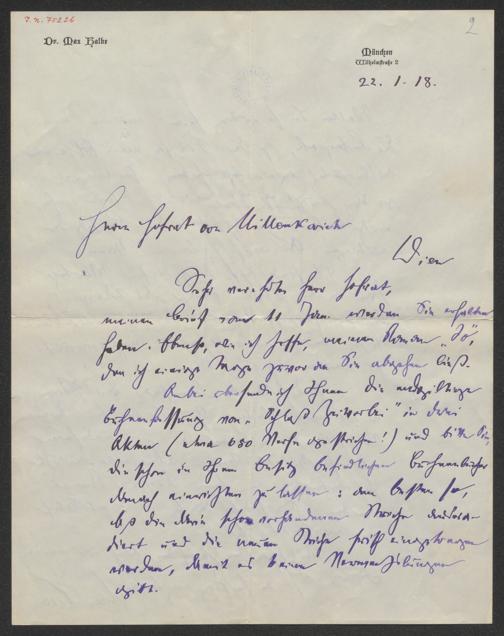 J.N. 75226
2
Dr. Max Halbe
München
Wilhelmstraße 2
22. 1. 18.
Herrn Hofrat von Millenkovich
Wien
Sehr verehrter Herr Hofrat,
meinen Brief vom 11 Jan. werden Sie erhalten
haben. Ebenso, wie ich hoffe, meinen Roman „Jo",
den ich einige Tage zuvor an Sie abgehen ließ.
Anbei übersende ich Ihnen die endgiltige
Bühnenfassung von „Schloß Zeitvorbei" in drei
Akten (etwa 680 Verse gestrichen!) und bitte Sie
die schon in Ihrem Besitz befindlichen Bühnenbücher
danach einrichten zu lassen: am besten so,
daß die darin schon vorhandenen Striche ausra-
diert und die neuen Striche frisch eingetragen
werden, damit es keine Verwechslungen
gibt.